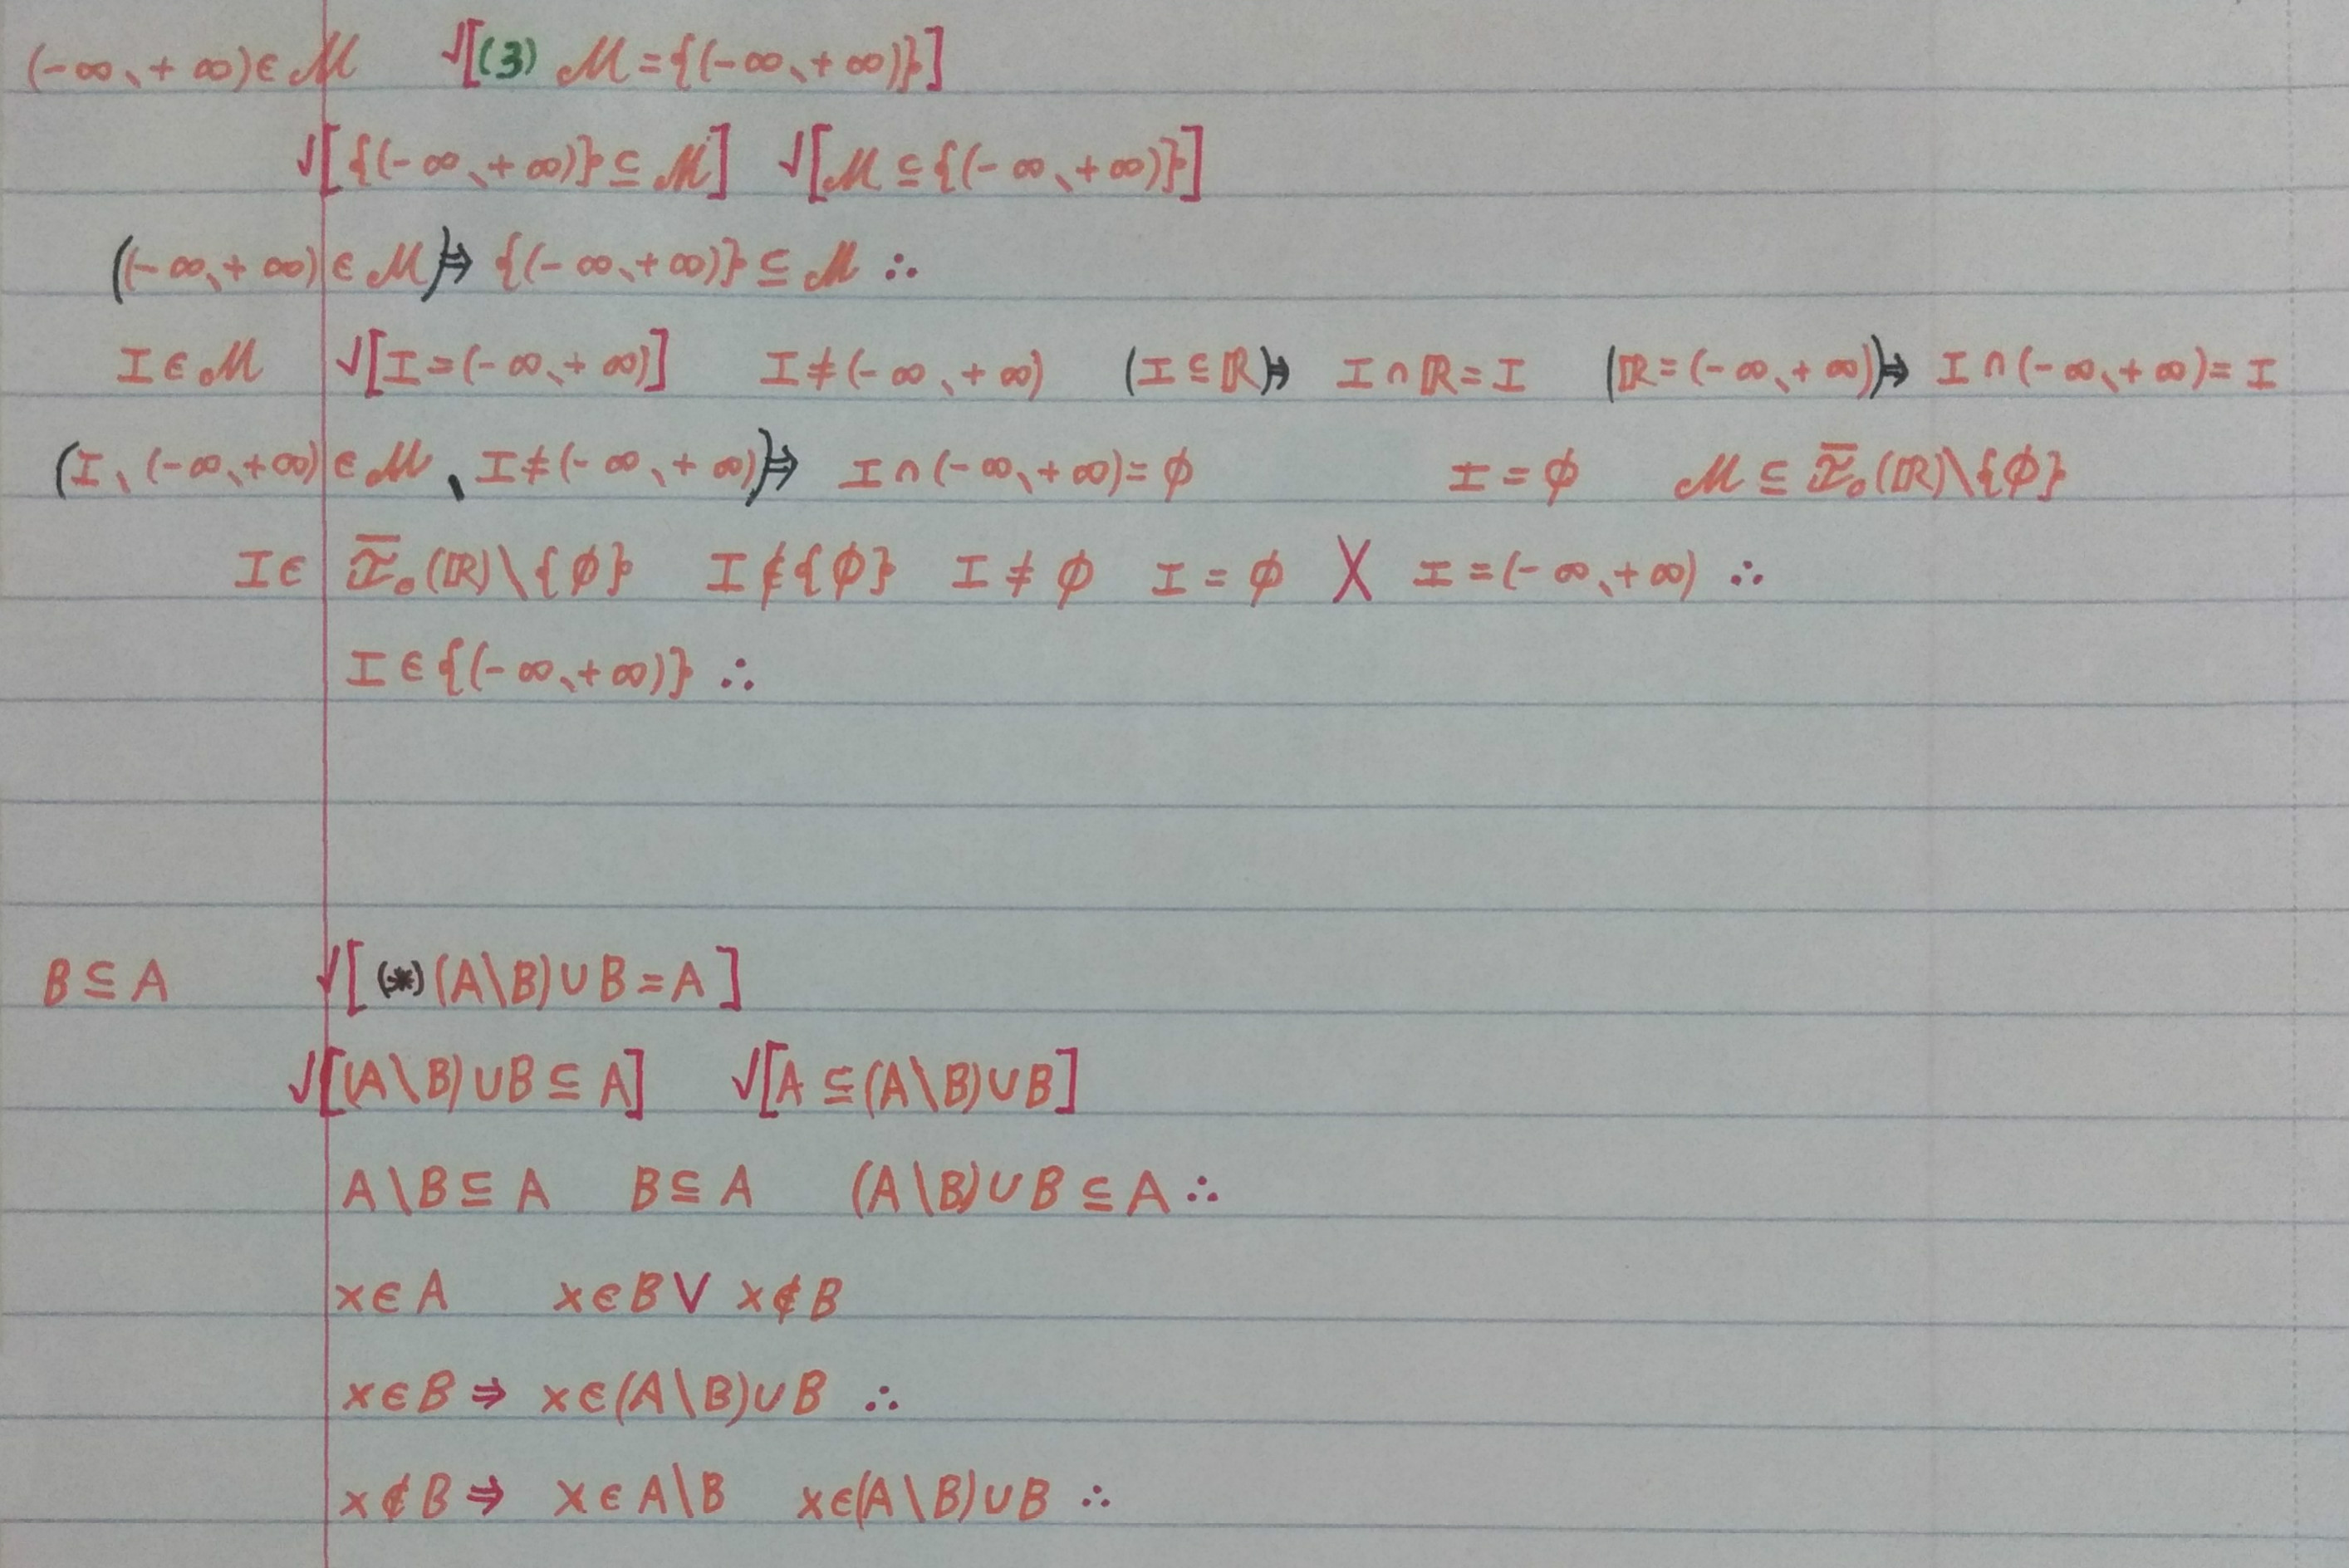 (-∞、+∞)∈ℳ √[(3) ℳ={(-∞、+∞)}]
√[{(-∞、+∞)}⊆ℳ] √[ℳ⊆{(-∞、+∞)}]
((-∞、+∞)∈ℳ)⇒ {(-∞、+∞)}⊆ℳ ∴
I∈ℳ √[I=(-∞、+∞)] I≠(-∞、+∞) (I⊆ℝ)⇒ I∩ℝ=I (ℝ=(-∞、+∞))⇒ I∩(-∞、+∞)=I
(I、(-∞、+∞)∈ℳ、I≠(-∞、+∞))⇒ I∩(-∞、+∞)=∅ I=∅ ℳ⊆ℐ̅₀(ℝ)\{∅}
I∈ ℐ̅₀(ℝ)\{∅} I∉{∅} I≠∅ I=∅ X I=(-∞、+∞) ∴
I∈{(-∞、+∞)} ∴
B⊆A √[(*)(A\B)∪B=A]
√[(A\B)∪B⊆A] √[A⊆(A\B)∪B]
A\B⊆A B⊆A (A\B)∪B⊆A ∴
x∈A x∈B∨x∉B
x∈B⇒ x∈(A\B)∪B ∴
x∉B⇒ x∈A\B x∈(A\B)∪B ∴